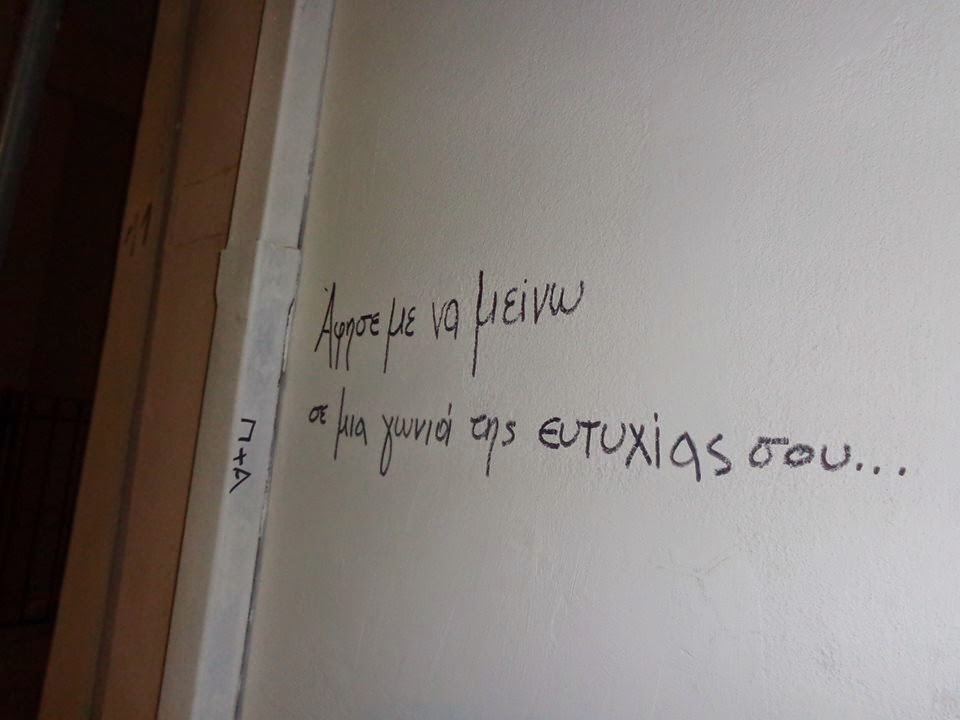 Άφησε με να μείνω
σε μια γωνιά της ευτυχίας σου...
Π+Δ